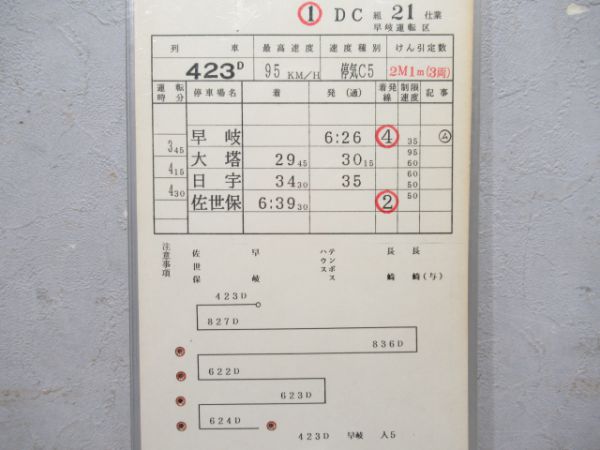 ① DC 組 21 仕業
早岐運転区
列車 最高速度 速度種別 けん引定数
423D 95 KM/H 停気C5 2M1m(3両)
運転時分 停車場名 着 発(通) 着発線 制限速度 記事
早岐 6:26 ④ 35 ㋰
3 45 95
大塔 29 45 30 15 60
4 15 60
日宇 34 30 35 50
4 30 50
佐世保 6:39 30 ②
注意事項 佐世保 早岐 ハウステンボス 長崎 長崎(与)
423D
827D
836D
622D
623D
624D
423D 早岐 入5